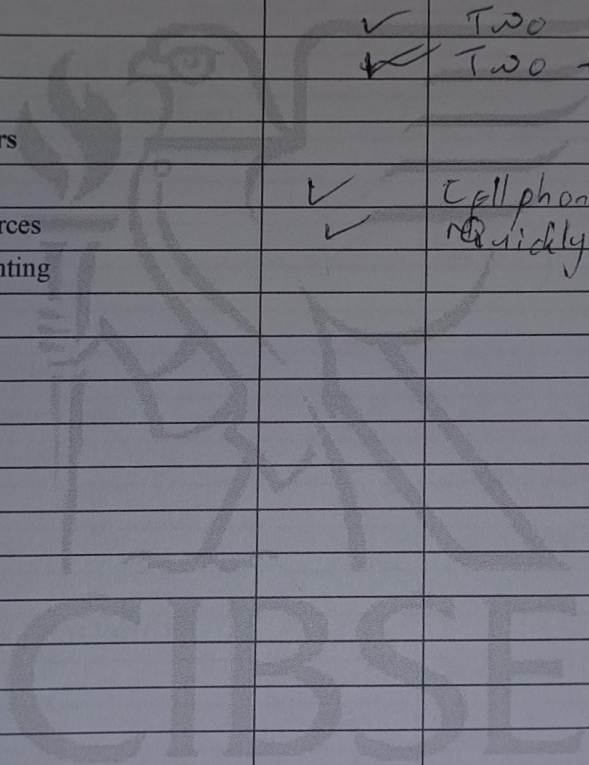 ✓ Two
✓ Two -
rs
✓ Cell phon
rces ✓ Quickly
nting
CIBSE